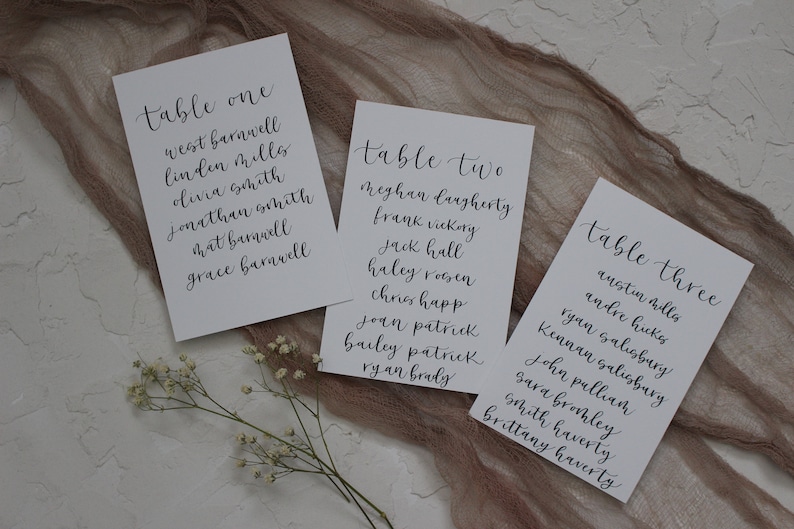 table one
west barnwell
linden mills
olivia smith
jonathan smith
mat barnwell
grace barnwell
table two
meghan daugherty
frank vickory
jack hall
haley rosen
chris happ
joan patrick
bailey patrick
ryan brady
table three
austin mills
andre hicks
ryan salisbury
kennan salisbury
john pulliam
sara bromley
smith haverty
brittany haverty